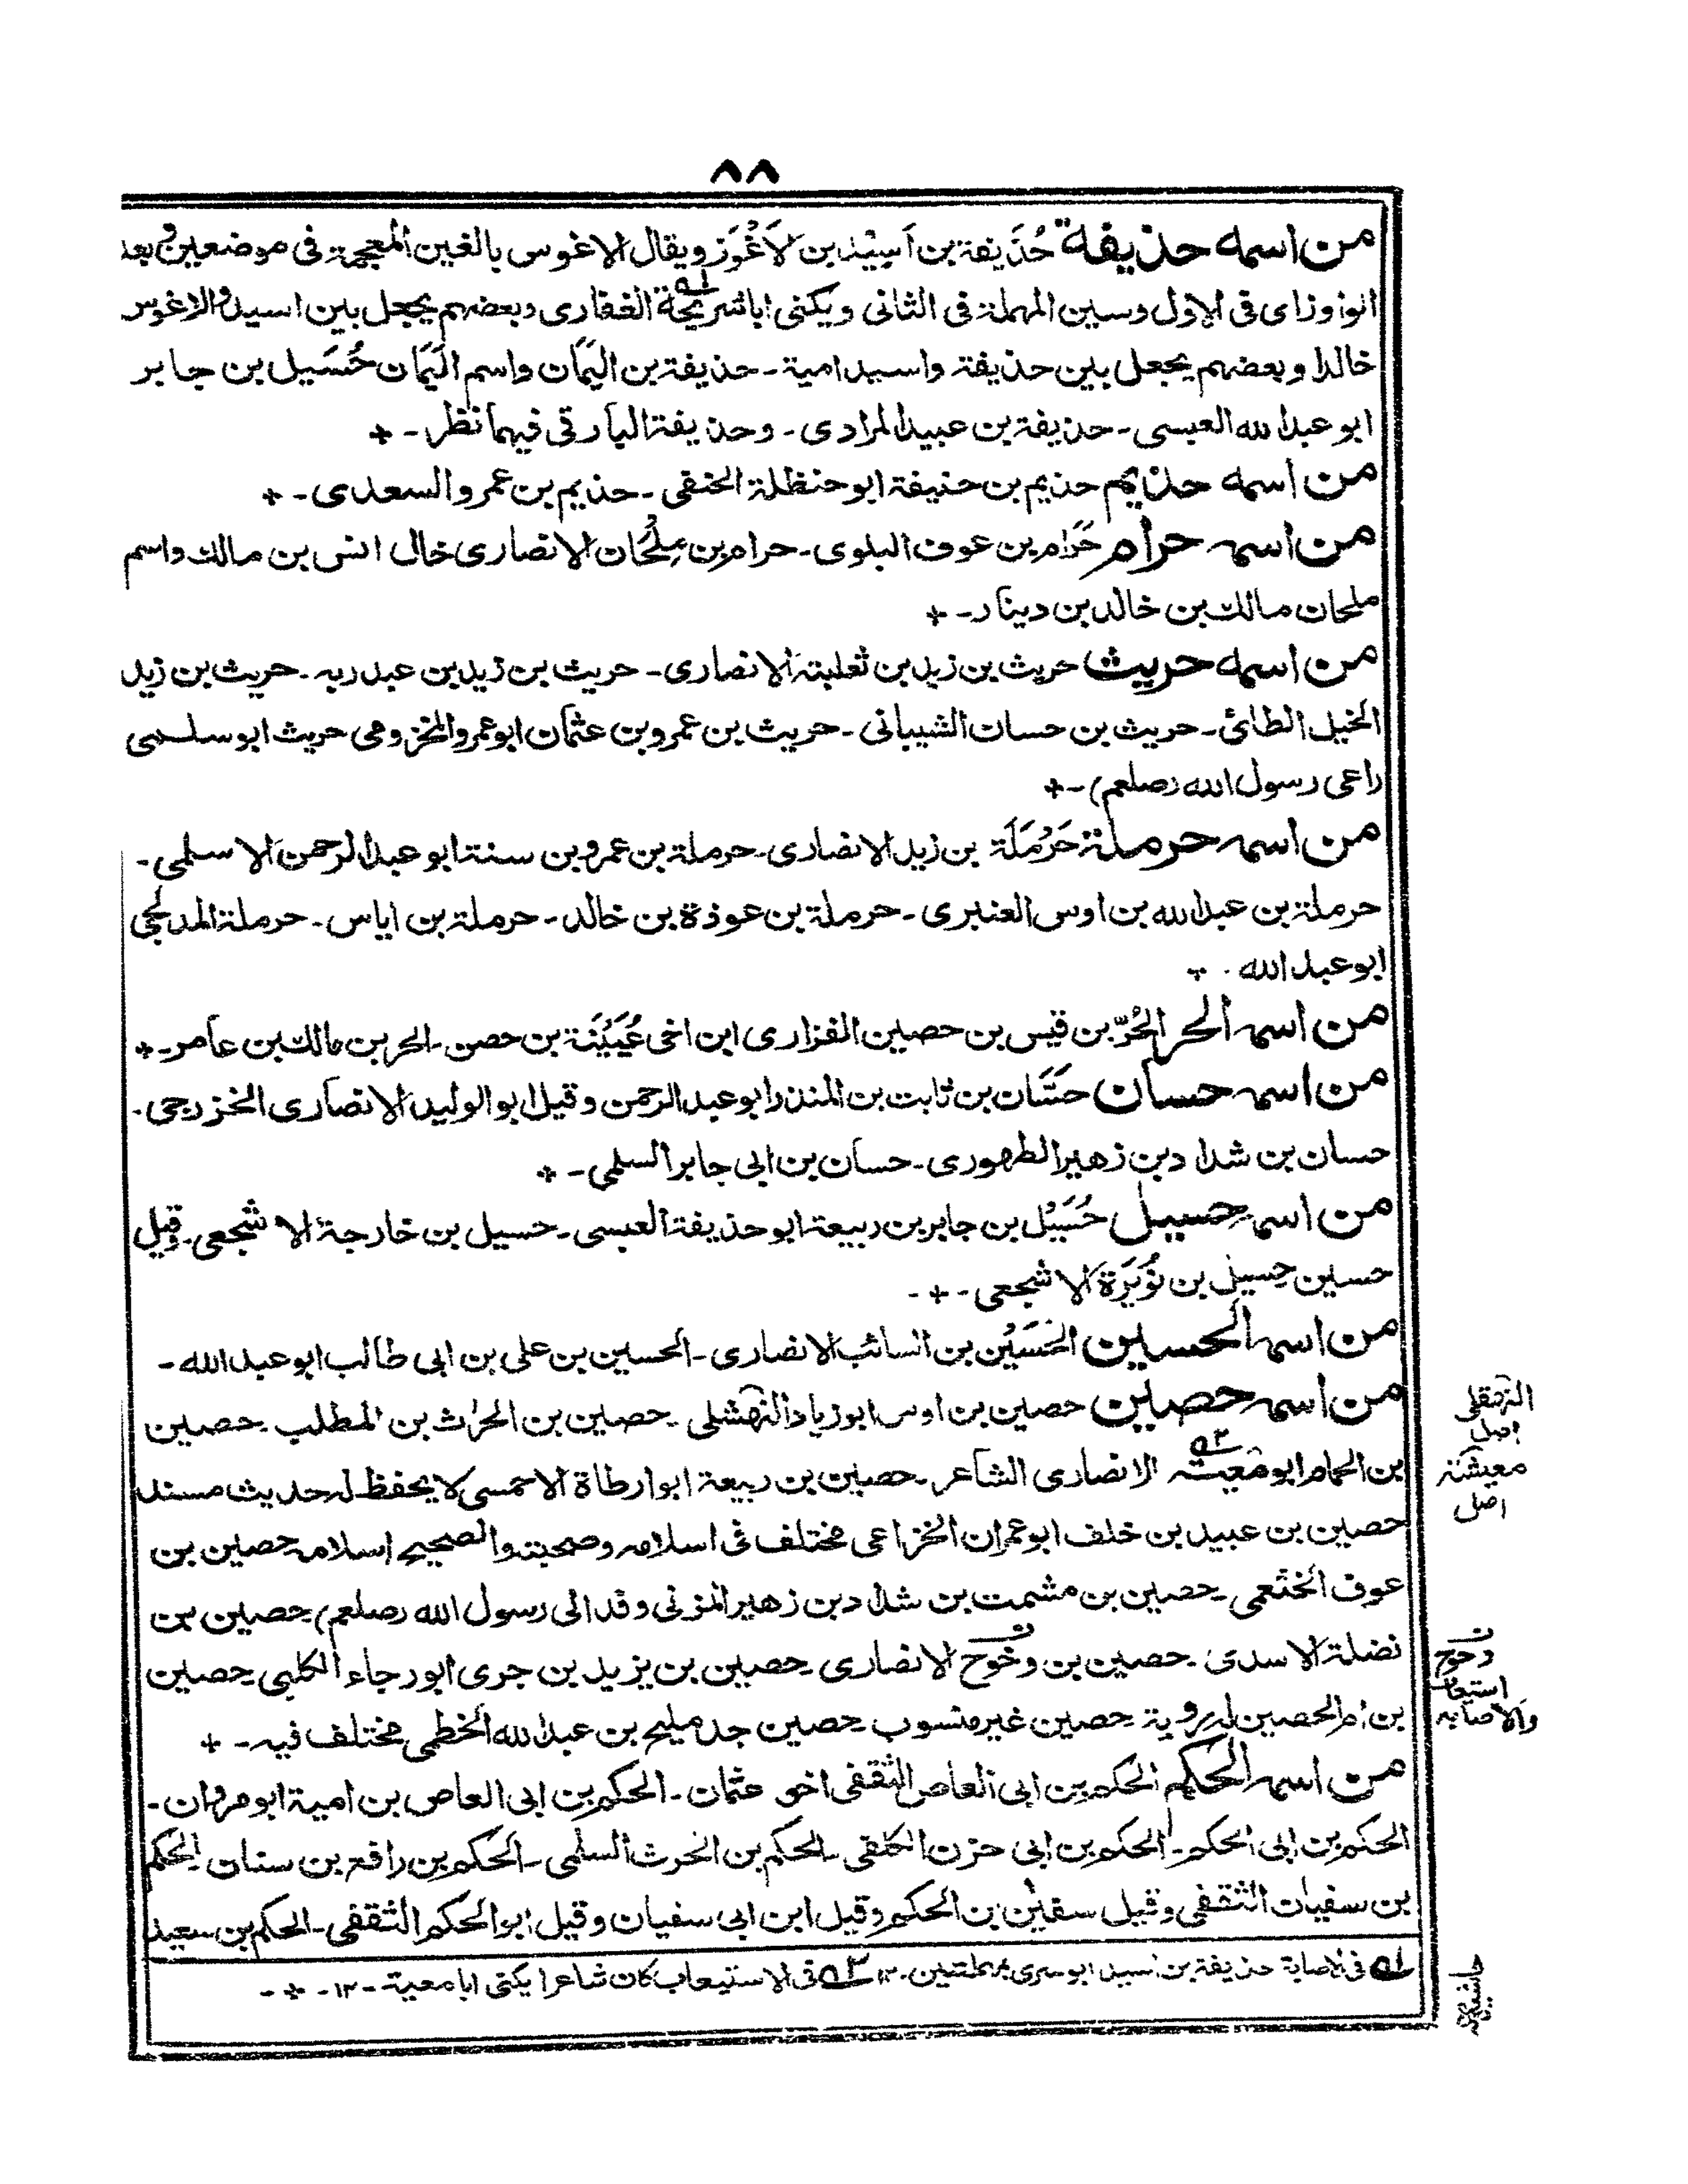 ٨٨
من اسمه حذيفة حُذَيفة بن اَسِيْد بن الاَغْوَز ويقال الاغوس بالغين المعجمة فى موضعين وبعد
الواو زاى فى الاول وسين المهملة فى الثانى ويكنى اباسَرِيحَة الغفارى وبعضهم يجعل بين اسيد والاغوس
خالدا وبعضهم يجعل بين حذيفة واسيد امية ـ حذيفة بن اليَمَان واسم اليَمَان حُسَيل بن جابر
ابو عبد الله العبسى ـ حذيفة بن عبيد المرادى ـ وحذيفة البارقى فيهما نظر ـ
من اسمه حذيم حذيم بن حنيفة ابو حنظلة الحنفى ـ حذيم بن عمرو السعدى ـ
من اسمه حرام حَرَام بن عوف البلوى ـ حرام بن مِلْحَان الانصارى خال انس بن مالك واسم
ملحان مالك بن خالد بن دينار ـ
من اسمه حريث حريث بن زيد بن ثعلبة الانصارى ـ حريث بن زيد بن عبد ربه ـ حريث بن زيد
الخيل الطائى ـ حريث بن حسان الشيبانى ـ حريث بن عمرو بن عثمان ابو عمرو المخزومى حريث ابو سلمى
راعى رسول الله (صلعم) ـ
من اسمه حرملة حَرْمَلَة بن زيد الانصارى ـ حرملة بن عمرو بن سنة ابو عبد الرحمن الاسلمى ـ
حرملة بن عبد الله بن اوس العنبرى ـ حرملة بن عوذة بن خالد ـ حرملة بن اياس ـ حرملة المدلجى
ابو عبد الله
من اسمه الحر الحُرّ بن قيس بن حصين الفزارى ابن اخى عُيَيْنَة بن حصن ـ الحر بن مالك بن عامر ـ
من اسمه حسان حَسَّان بن ثابت بن المنذر ابو عبد الرحمن وقيل ابو الوليد الانصارى الخزرجى ـ
حسان بن شداد بن زهير الطهورى ـ حسان بن ابى جابر السلمى ـ
من اسمه حسيل حُسَيْل بن جابر بن ربيعة ابو حذيفة العبسى ـ حسيل بن خارجة الاشجعى ـ وقيل
حسين حسيل بن نُوَيْرَة الاشجعى ـ
من اسمه الحسين الحُسَيْن بن السائب الانصارى ـ الحسين بن على بن ابى طالب ابو عبد الله ـ
من اسمه حصين حصين بن اوس ابو زياد النهشلى ـ حصين بن الحرث بن المطلب ـ حصين
بن الحمام ابو معية الانصارى الشاعر ـ حصين بن ربيعة ابو ارطاة الاحمسى لا يحفظ له حديث مسند
حصين بن عبيد بن خلف ابو عمران الخزاعى مختلف فى اسلامه وصحبته والصحيح اسلامه حصين بن
عوف الخثعمى ـ حصين بن مشمت بن شداد بن زهير المزنى وفد الى رسول الله (صلعم) حصين بن
نضلة الاسدى ـ حصين بن وحَوح الانصارى ـ حصين بن يزيد بن جرى ابو رجاء الكلبى ـ حصين
بن ام الحصين له روية حصين غير منسوب ـ حصين جد مليح بن عبد الله الخطمى مختلف فيه ـ
من اسمه الحكم الحكم بن ابى العاص الثقفى اخو عثمان ـ الحكم بن ابى العاص بن امية ابو مروان ـ
الحكم بن ابى الحكم ـ الحكم بن ابى حزن الكلفى ـ الحكم بن الحرث السلمى ـ الحكم بن رافع بن سنان الحكم
بن سفيان الثقفى وقيل سفين بن الحكم وقيل ابن ابى سفيان وقيل ابو الحكم الثقفى ـ الحكم بن سعيد
له١ فى الاصابة حذيفة بن اسيد ابو سرى بمهملتين ـ ١٢ له٢ فى الاستيعاب كان شاعرا يكنى ابا معية ـ ١٢ ـ
اصل
اصل
وحوح
استيعاب
والاصابه